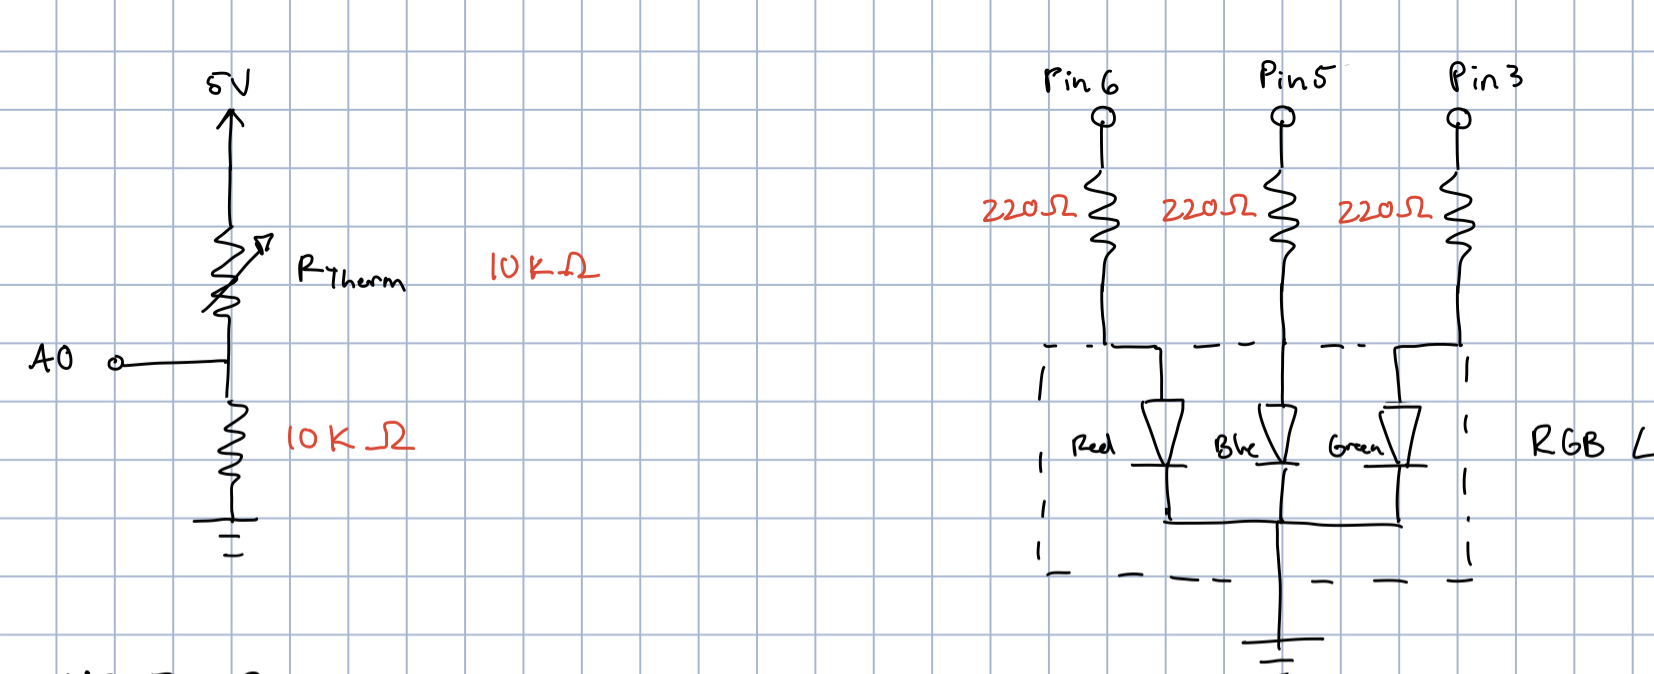 5V
RTherm
10KΩ
A0
10KΩ
Pin 6
Pin 5
Pin 3
220Ω
220Ω
220Ω
Red
Blue
Green
RGB L